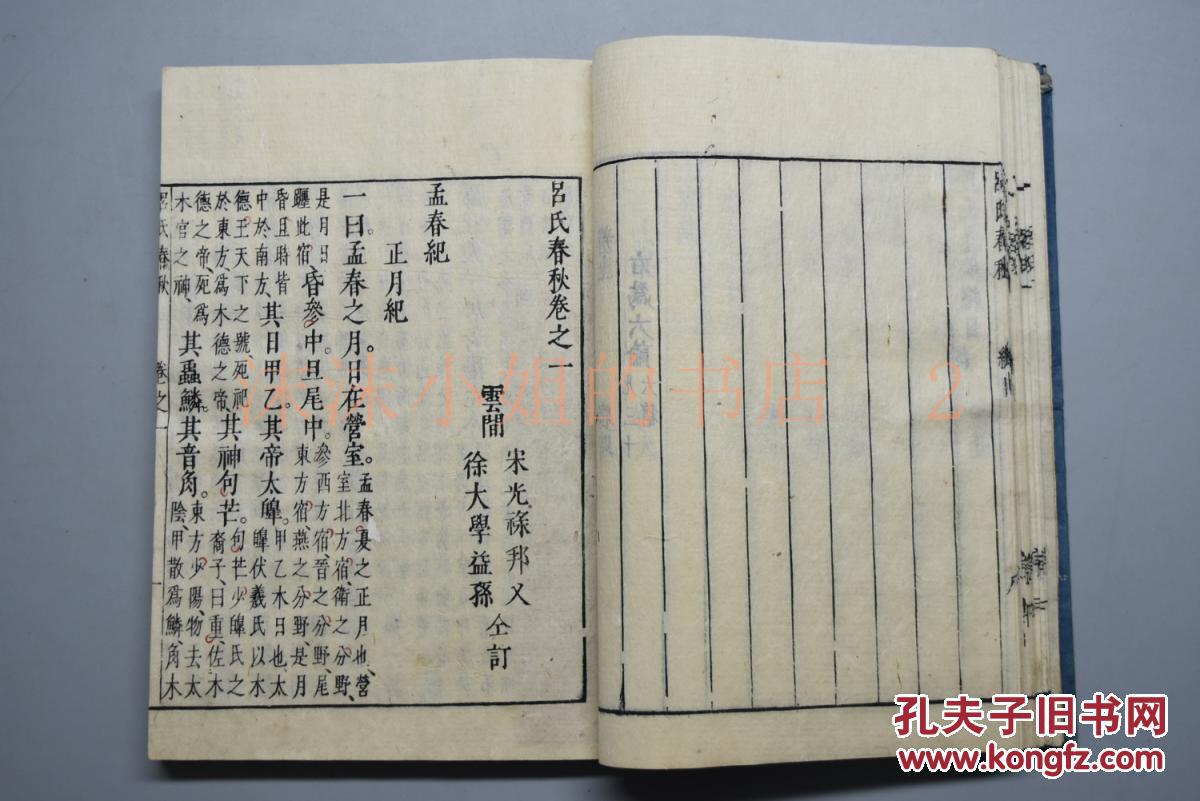 呂氏春秋卷之一
雲間
宋光祿邦乂
徐大學益孫
仝訂
孟春紀
正月紀
一曰。孟春之月。日在營室。孟春、夏之正月也、營室北方宿、衛之分野、
是月日躔此宿昏參中。旦尾中。參西方宿、晉之分野、尾東方宿、燕之分野、是月
昏旦時皆中於南方、其日甲乙。其帝太皡。甲乙木日也、太皡伏羲氏以木
德王天下之號、死祀於東方、爲木德之帝、其神句芒。句芒少皡氏之裔子、曰重、佐木
德之帝、死爲木官之神、其蟲鱗。其音角。東方少陽、物去太陰、甲散爲鱗、角木
呂氏春秋 卷之一 一
呂氏春秋
沫沫小姐的书店 2
孔夫子旧书网
www.kongfz.com